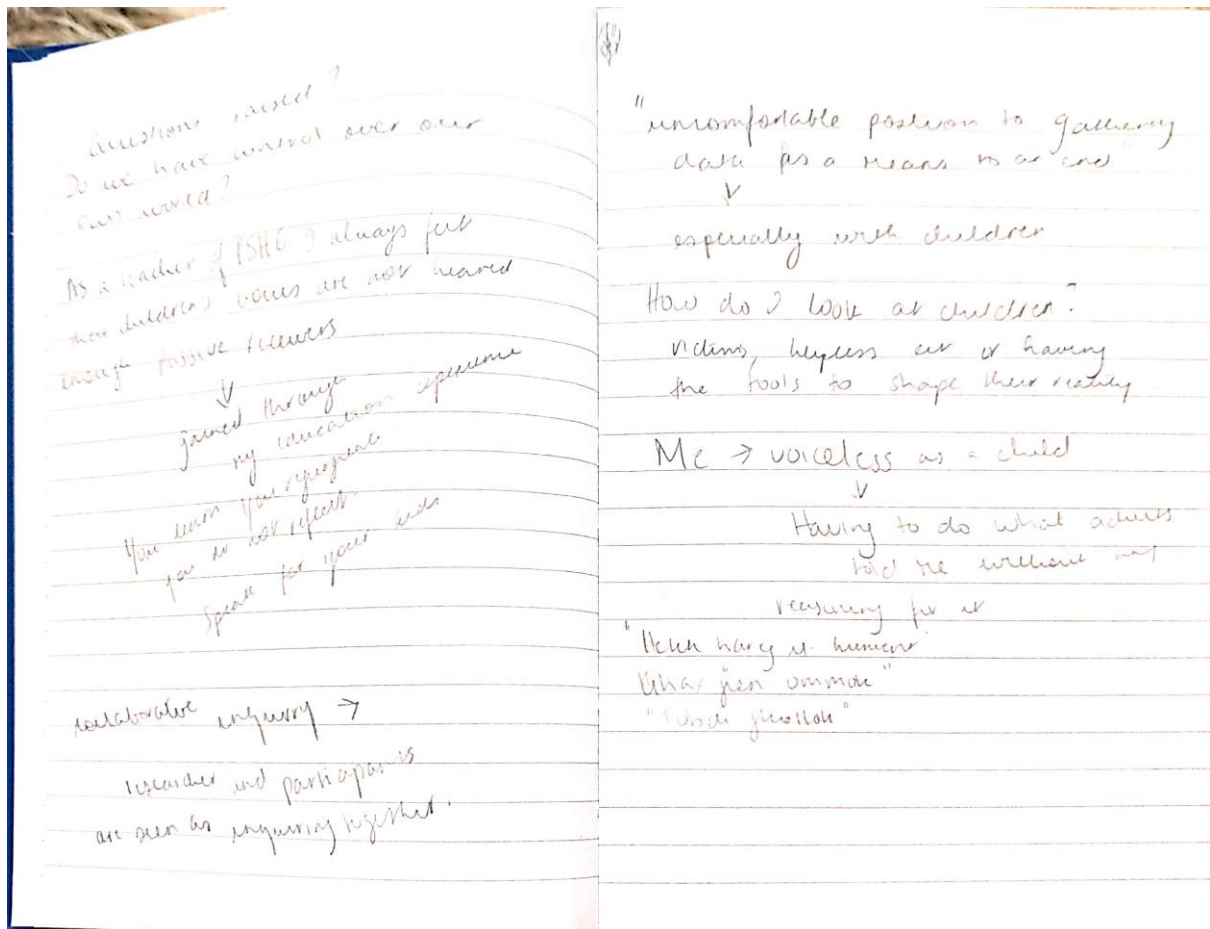 Questions raised?
Do we have control over our
own world?
As a teacher of PSHE I always felt
that children's voices are not heared
enough Passive receivers
↓
gained through
my education experience
You learn You regurgitate
you do not reflect.
Speak for your
collaborative inquirry →
researcher and participants
are seen as inquirring together.
"uncomfortable position to gathering
data as a means to an end"
↓
especially with children
How do I look at children?
victims, helpless or having
the tools to shape their reality.
Me → voiceless as a child
↓
Having to do what adults
told me without any
reasoning for it